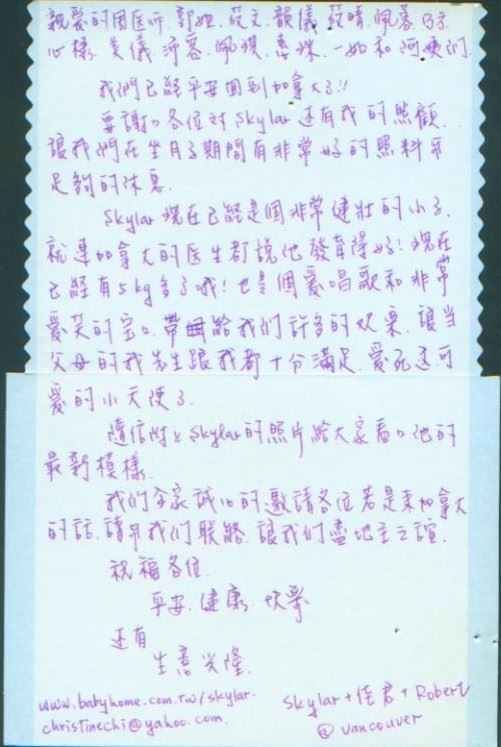 親愛的周医師, 郭姐, 筱文, 韻儀, 筱晴, 佩蓉,
心樣, 美儀, 沛蓉, 佩琪, 惠珠, 一如和阿姨們,
我們已經平安回到加拿大了!!
要謝謝各位对Skylar还有我的照顧,
讓我們在坐月子期間有非常好的照料和
足夠的休息.
Skylar現在已經是個非常健壯的小子,
就連加拿大的医生都說他發育得好!現在
已經有5kg多了哦!也是個愛唱歌和非常
愛笑的宝宝, 帶給我们許多的欢樂, 讓当
父母的我先生跟我都十分滿足, 愛死这可
愛的小天使了.
隨信附上Skylar的照片給大家看看他的
最新模樣.
我们全家誠心的邀請各位若是來加拿大
的話, 請和我们联絡, 讓我们盡地主之誼.
祝福各位,
平安, 健康, 快樂
还有
生意兴隆.
www.babyhome.com.tw/skylar.
christinechi@yahoo.com.
Skylar + 佳君 + Robert
@ Vancouver